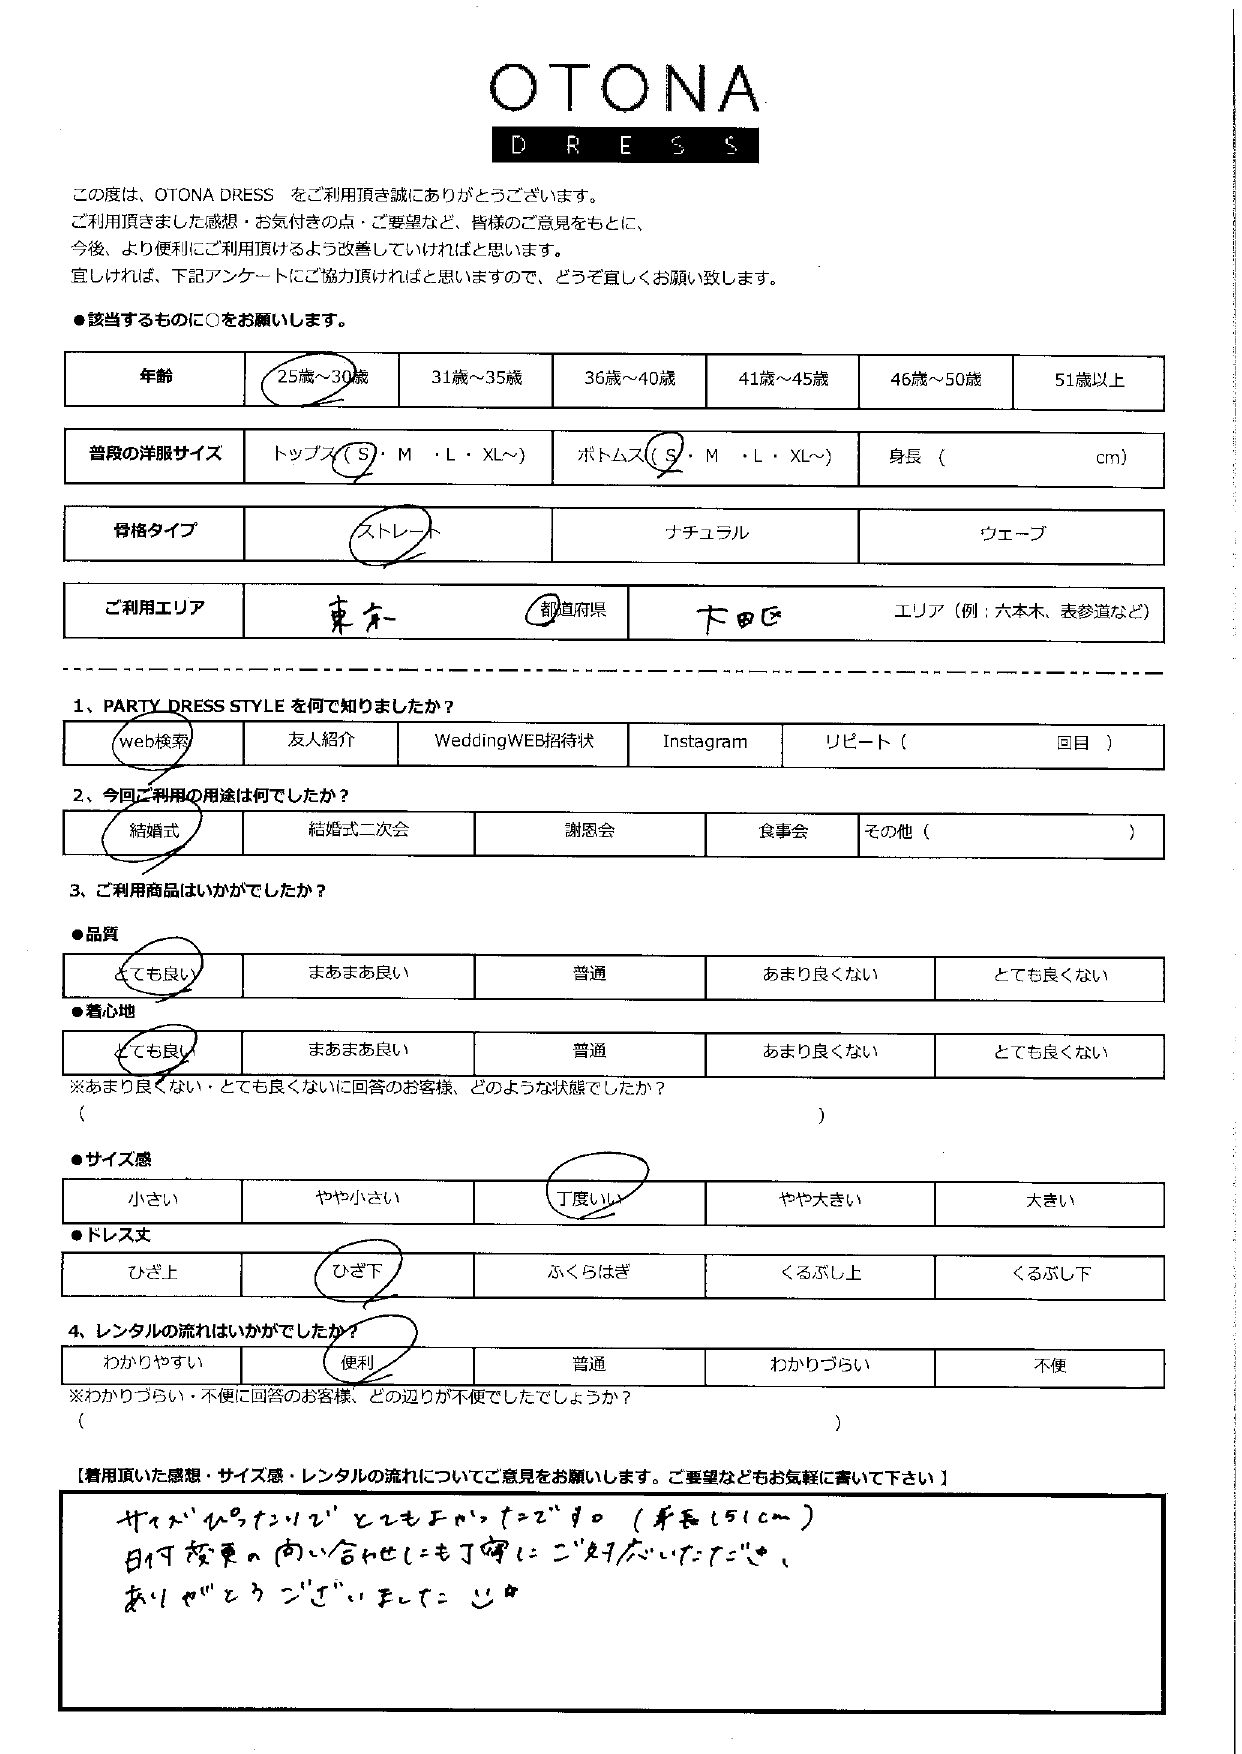 OTONA
DRESS
この度は、OTONA DRESS　をご利用頂き誠にありがとうございます。
ご利用頂きました感想・お気付きの点・ご要望など、皆様のご意見をもとに、
今後、より便利にご利用頂けるよう改善していければと思います。
宜しければ、下記アンケートにご協力頂ければと思いますので、どうぞ宜しくお願い致します。
●該当するものに○をお願いします。
年齢 25歳～30歳 31歳～35歳 36歳～40歳 41歳～45歳 46歳～50歳 51歳以上
普段の洋服サイズ トップス( S・ M ・L・ XL～) ボトムス( S・ M ・L・ XL～) 身長 ( cm)
骨格タイプ ストレート ナチュラル ウェーブ
ご利用エリア 東京 都道府県 大田区 エリア（例：六本木、表参道など）
1、PARTY DRESS STYLE を何で知りましたか？
web検索 友人紹介 WeddingWEB招待状 Instagram リピート（ 回目 ）
2、今回ご利用の用途は何でしたか？
結婚式 結婚式二次会 謝恩会 食事会 その他（ ）
3、ご利用商品はいかがでしたか？
●品質
とても良い まあまあ良い 普通 あまり良くない とても良くない
●着心地
とても良い まあまあ良い 普通 あまり良くない とても良くない
※あまり良くない・とても良くないに回答のお客様、どのような状態でしたか？
（ ）
●サイズ感
小さい やや小さい 丁度いい やや大きい 大きい
●ドレス丈
ひざ上 ひざ下 ふくらはぎ くるぶし上 くるぶし下
4、レンタルの流れはいかがでしたか？
わかりやすい 便利 普通 わかりづらい 不便
※わかりづらい・不便に回答のお客様、どの辺りが不便でしたでしょうか？
（ ）
【着用頂いた感想・サイズ感・レンタルの流れについてご意見をお願いします。ご要望などもお気軽に書いて下さい 】
サイズぴったりでとてもよかったです。（身長151cm）
日付変更の問い合わせにも丁寧にご対応いただき、
ありがとうございました